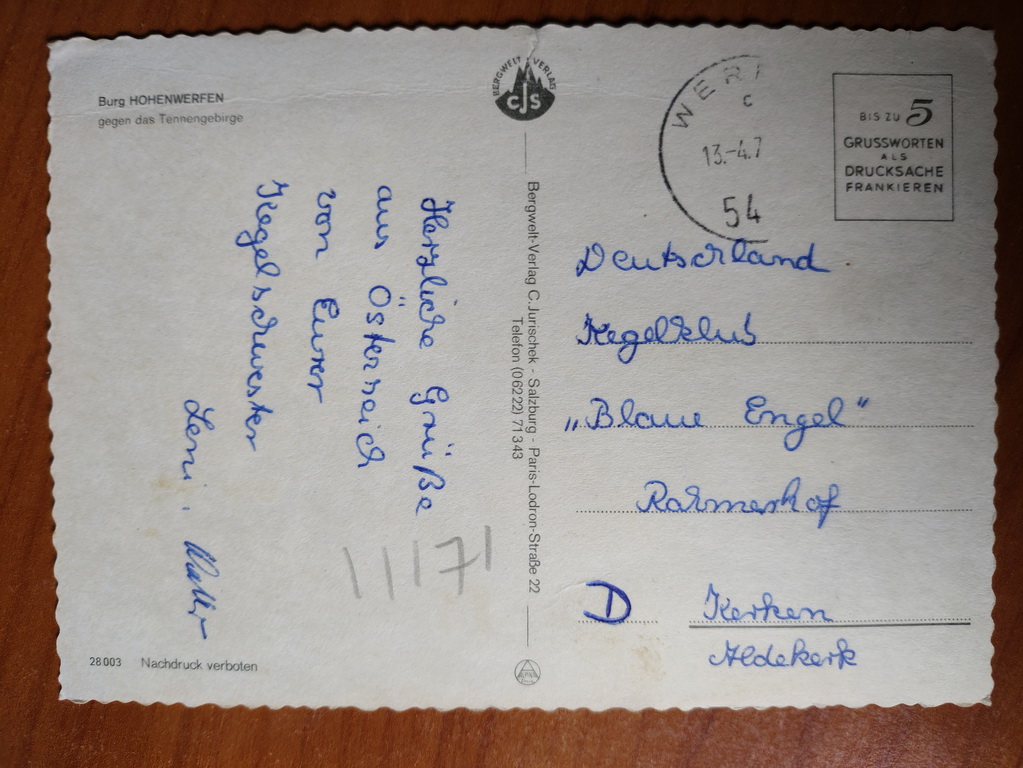 Burg HOHENWERFEN
gegen das Tennengebirge
Herzliche Grüße
aus Österreich
von Eurer
Kegelschwester
Leni.
28003 Nachdruck verboten
BERGWELT VERLAG
CJS
Bergwelt-Verlag C.Jurischek - Salzburg - Paris-Lodron-Straße 22
Telefon (06222) 71343
WERF
c
13.-4.7
54
BIS ZU 5
GRUSSWORTEN
ALS
DRUCKSACHE
FRANKIEREN
Deutschland
Kegelklub
„Blaue Engel"
Rahmerhof
D Kerken
Aldekerk